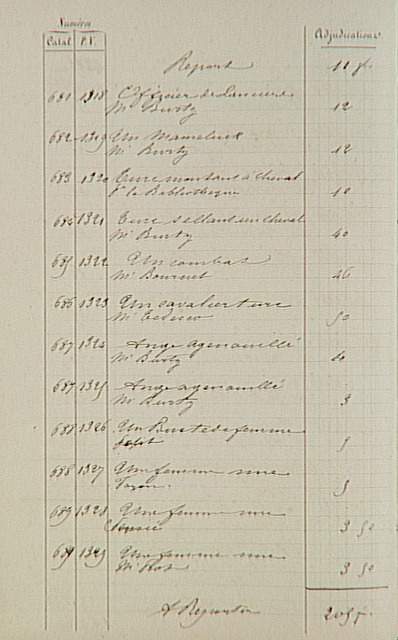 Numéros
Catal. P.V. Adjudications
Report 11 fr.
681 1318 Officier de Lanciers 12
Mr Burty
682 1319 Un Mameluck 12
Mr Burty
683 1320 Turc montant à cheval 10
pr la Bibliothèque
684 1321 Turc sellant un cheval 40
Mr Burty
685 1322 Un combat 46
Mr
686 1323 Un cavalier turc 50
Mr
687 1324 Ange agenouillé
Mr Burty
687 1325 Ange agenouillé 3
Mr Burty
688 1326 Un Buste de femme 5
688 1327 Une femme nue 5
689 1328 Une femme nue 3 50
689 1329 Une femme nue 3 50
Mr
A Reporter 205 fr.